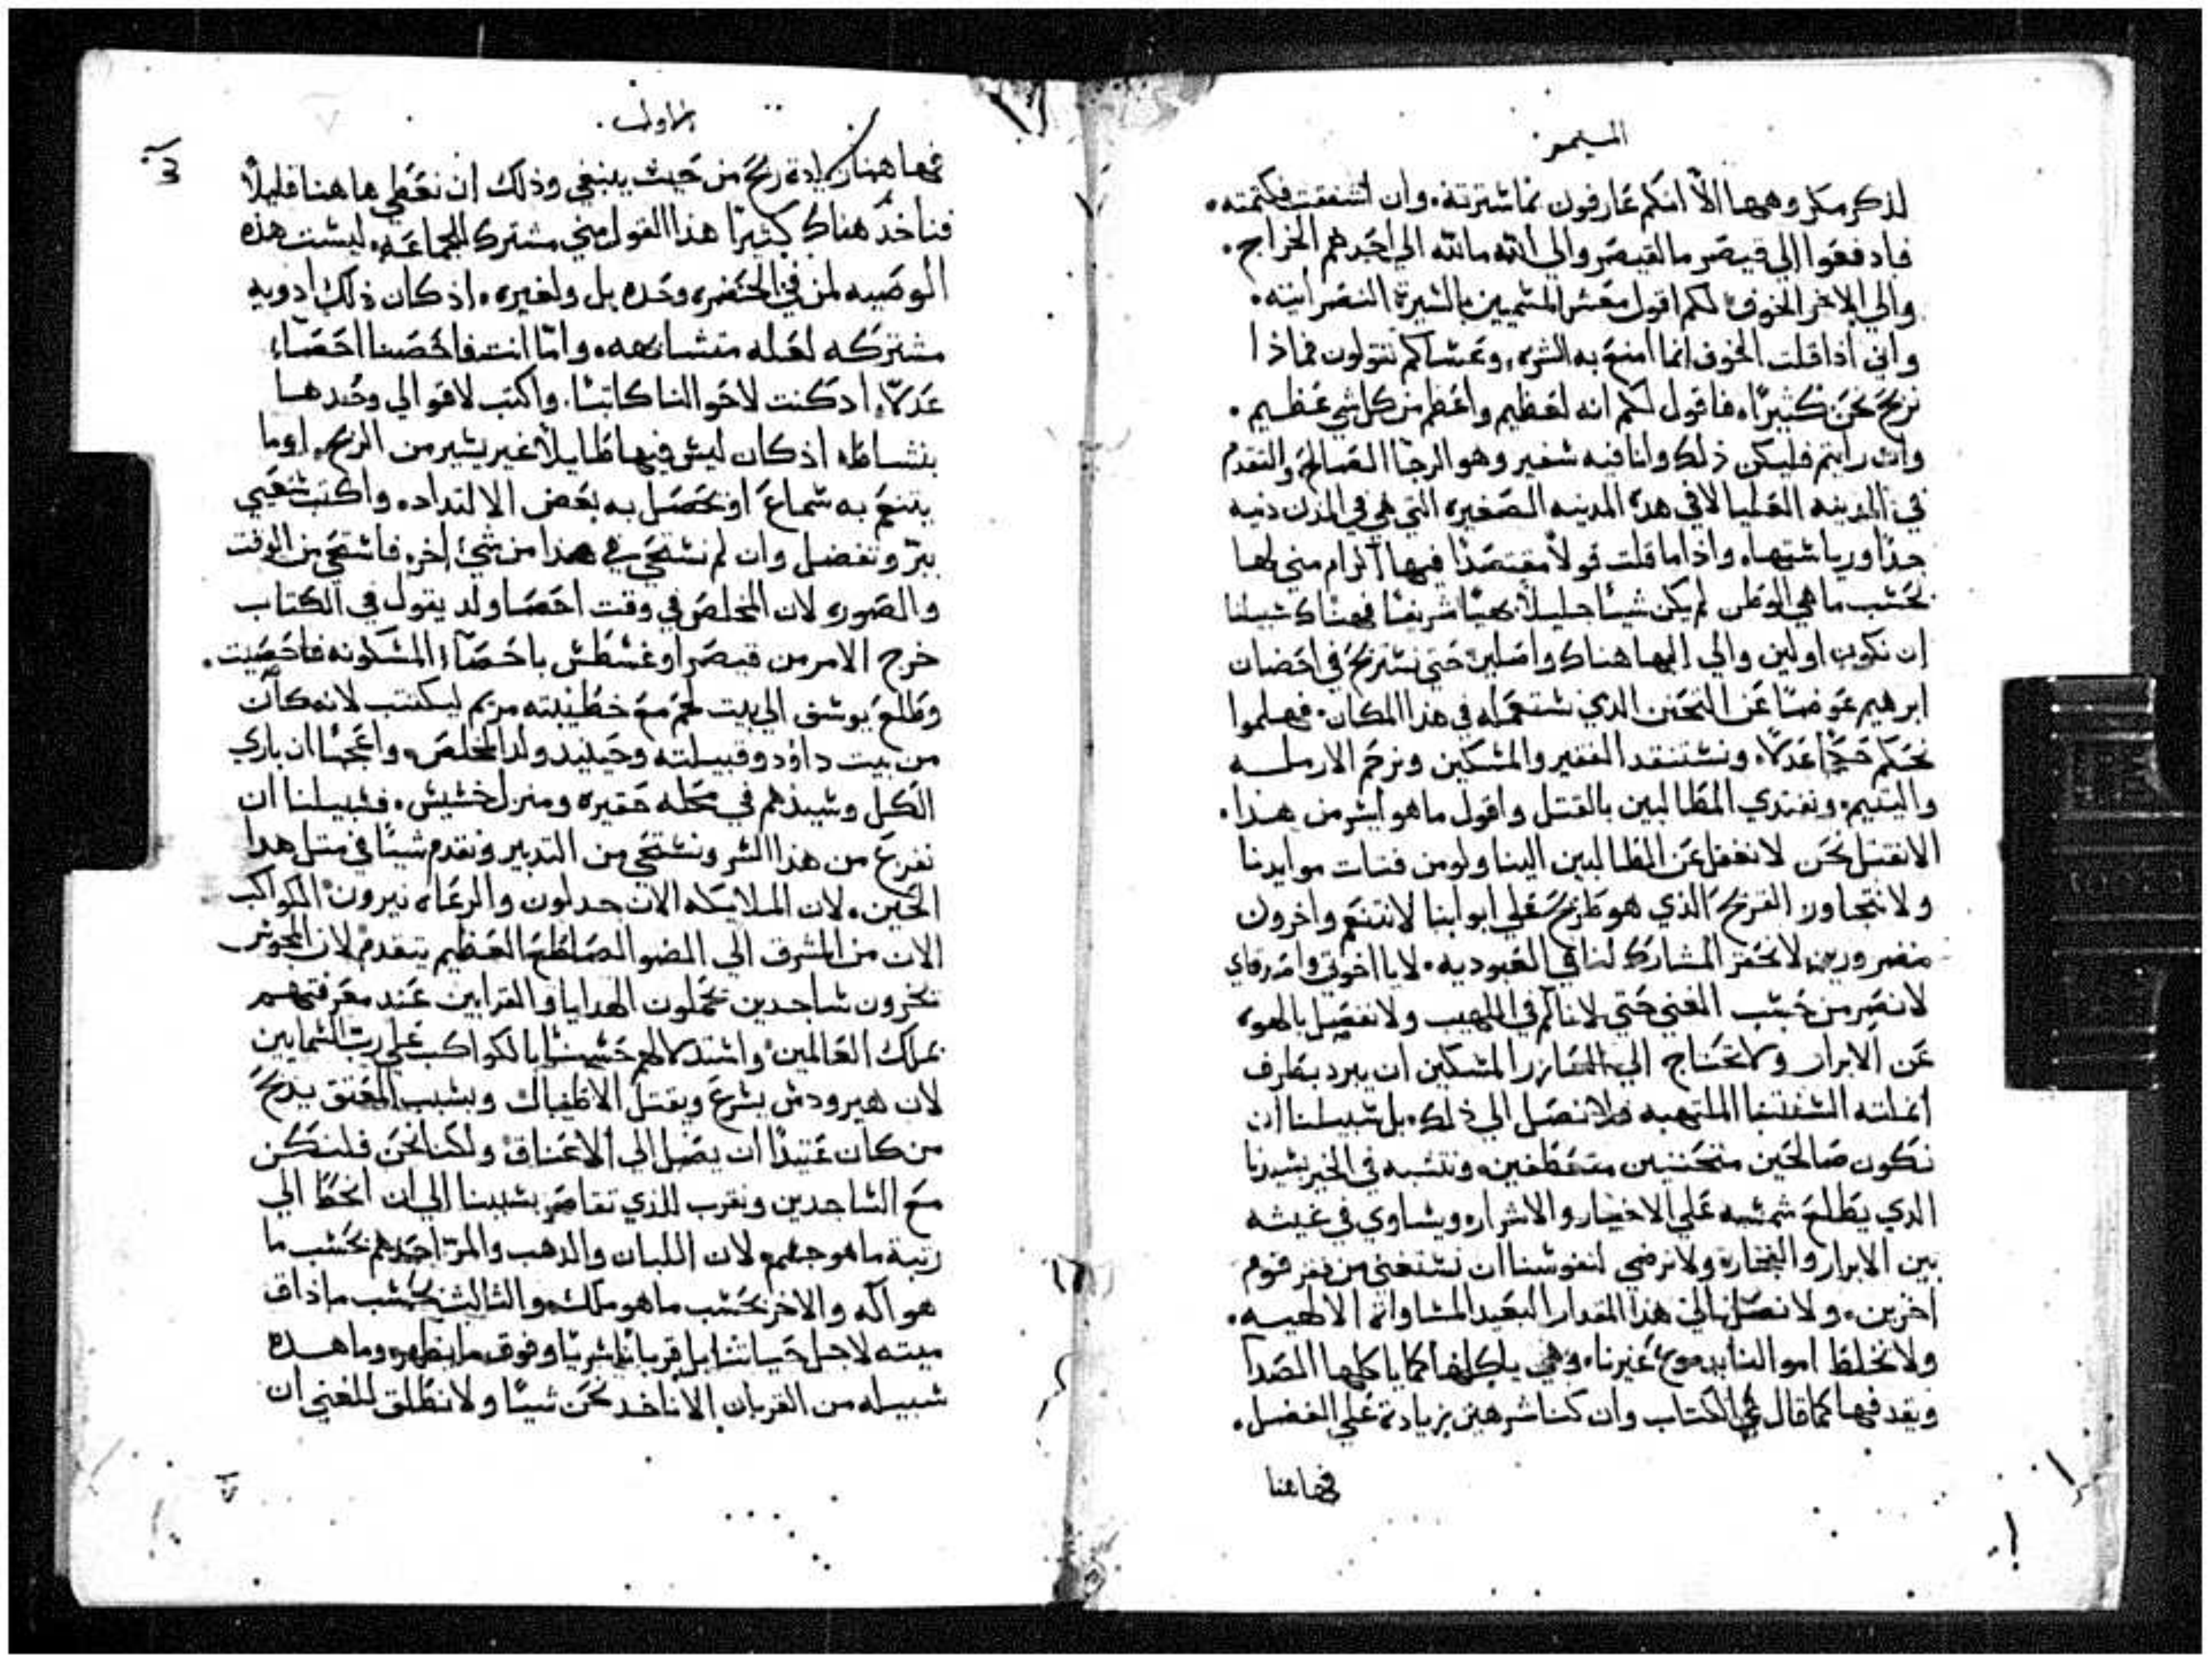 الميمر
لذكر مكر وهمها الا انكم عارفون بما سترته. وان اشفقت فكتمته.
فادفعوا الي قيصر ما لقيصر والي الله ما لله الي احدهم الخراج.
والي الاخر الخوف لكم اقول معشر المتممين بالسيرة النصرانيه.
واني اذا قلت الخوف انما امنع به الشره. وعساكم تقولون فماذا
نربح نحن كثيرًا. فاقول لكم انه لعظيم واعظم من كل شي عظيم.
وان رايتم فليكن ذلك وانا فيه سفير وهو الرجا الصالح والتقدم
في المدينه العليا لا في هذه المدينه الصغيره التي هي في المدن دنيه
جدًا ورياستها. واذا ما قلت قولاً مقتصدًا فيها اكرام مني لها
بحسب ما هي الوطن لم يكن شيًا جليلاً بهيًا شريفًا فهناك سبيلنا
ان نكون اولين والي الهها هناك واصلين حتي نستريح في احضان
ابرهيم عوضًا عن التحنن الذي نستعمله في هذا المكان. فهلموا
نحكم حكمًا عدلاً. ونستنقد الفقير والمسكين ونرحم الارمله
واليتيم. ونفتدي المطالبين بالقتل واقول ما هو ايسر من هذا.
الا نقتل نحن لا نغفل عن الطالبين الينا ولو من فتات موايدنا
ولا نتجاوز القريح الذي هو طريح علي ابوابنا لا نتنعم واخرون
مضرورين. لا نحقر المشارك لنا في العبوديه. لا يا اخوتي وامرفاي
لا نصر من حسب الغني حتي لا نالم في اللهيب ولا نفصل بالهوه
عن الابرار ولا نحتاج الي العازر المسكين ان يبرد بطرف
انملته الشفتنا الملتهبه فلا نصل الي ذلك. بل سبيلنا ان
نكون صالحين متحننين متعطفين. ونتشبه في الخير بسيدنا
الدي يطلع شمسه علي الاخيار والاشرار. ويساوي في غيثه
بين الابرار والفجار. ولا نرضي لنفوسنا ان نستغني من فقر قوم
اخرين. ولا نصل الي هذا المقدار البعيد المساواه الالهيه.
ولا نخلط اموالنا بدموع غيرنا. وهي ياكلها كما ياكلها الصدا
ويقدفها كما قال في الكتاب وان كنا شرهين بزيادة علي الفضل.
فهاهنا
الاول.
فهاهنا زيادة ربح من حيث ينبغي وذلك ان نعطي هاهنا قليلاً
فناخذ هناك كثيرًا هذا القول مني مشترك للجماعه. ليست هذه
الوصيه لمن في الحضره وحده بل ولغيره. اذ كان ذلك ادويه
مشتركه لعله متشابهه. واما انت فاحصنا احصاء
عدلاً. اذ كنت لاحوالنا كاتبًا. واكتب لاقوالي وحدها
بنشاط. اذ كان ليس فيها طايلاً غير يسير من الربح. او ما
يتنعم به سماع او يحصل به بعض الالتداد. واكتب شعبي
ببر وتفضل وان لم نستحي في هذا من شيء اخر. فاستحي من الوقت
والصوره لان المخلص في وقت احصا ولد يقول في الكتاب
خرج الامر من قيصر اوغسطس باحصاء المسكونه فاحصيت.
وطلع يوسف الي بيت لحم مع خطيبته مريم ليكتتب لانه كان
من بيت داؤد وقبيلته وحينيد ولد المخلص. واعجبًا ان باري
الكل وسيدهم في محله حقيره ومنزل خسيس. فسبيلنا ان
نفرع من هذا السر ونستحي من التدبير ونقدم شيًا في متل هدا
الحين. لان الملايكه الان جدلون والرعاه نيرون الكواكب
الان من المشرق الي الضو الساطع العظيم يتقدم. لان المجوس
يخرون ساجدين يحملون الهدايا والقرابين عند معرفتهم
بملك العالمين واستدلالهم بالكواكب علي رب السمايين
لان هيرودس يسرع ويقتل الاطفال وبسبب المعتق يذبح
من كان عتيدًا ان يصل الي الاعتاق ولكنا نحن فلنكن
مع الساجدين ونقرب للذي تقاصر بسببنا الي ان انحط الي
رتبة ما هو جسم. لان اللبان والدهب والمر احدهم بحسب ما
هو اله والاخر بحسب ما هو ملك. والثالث بحسب ما ذاق
ميته لاجل حياتنا بل قربانًا سريًا وفوق ما يظهر. وما هده
سبيله من القربان الا ناخد نحن شيًا ولا نطلق للغني ان